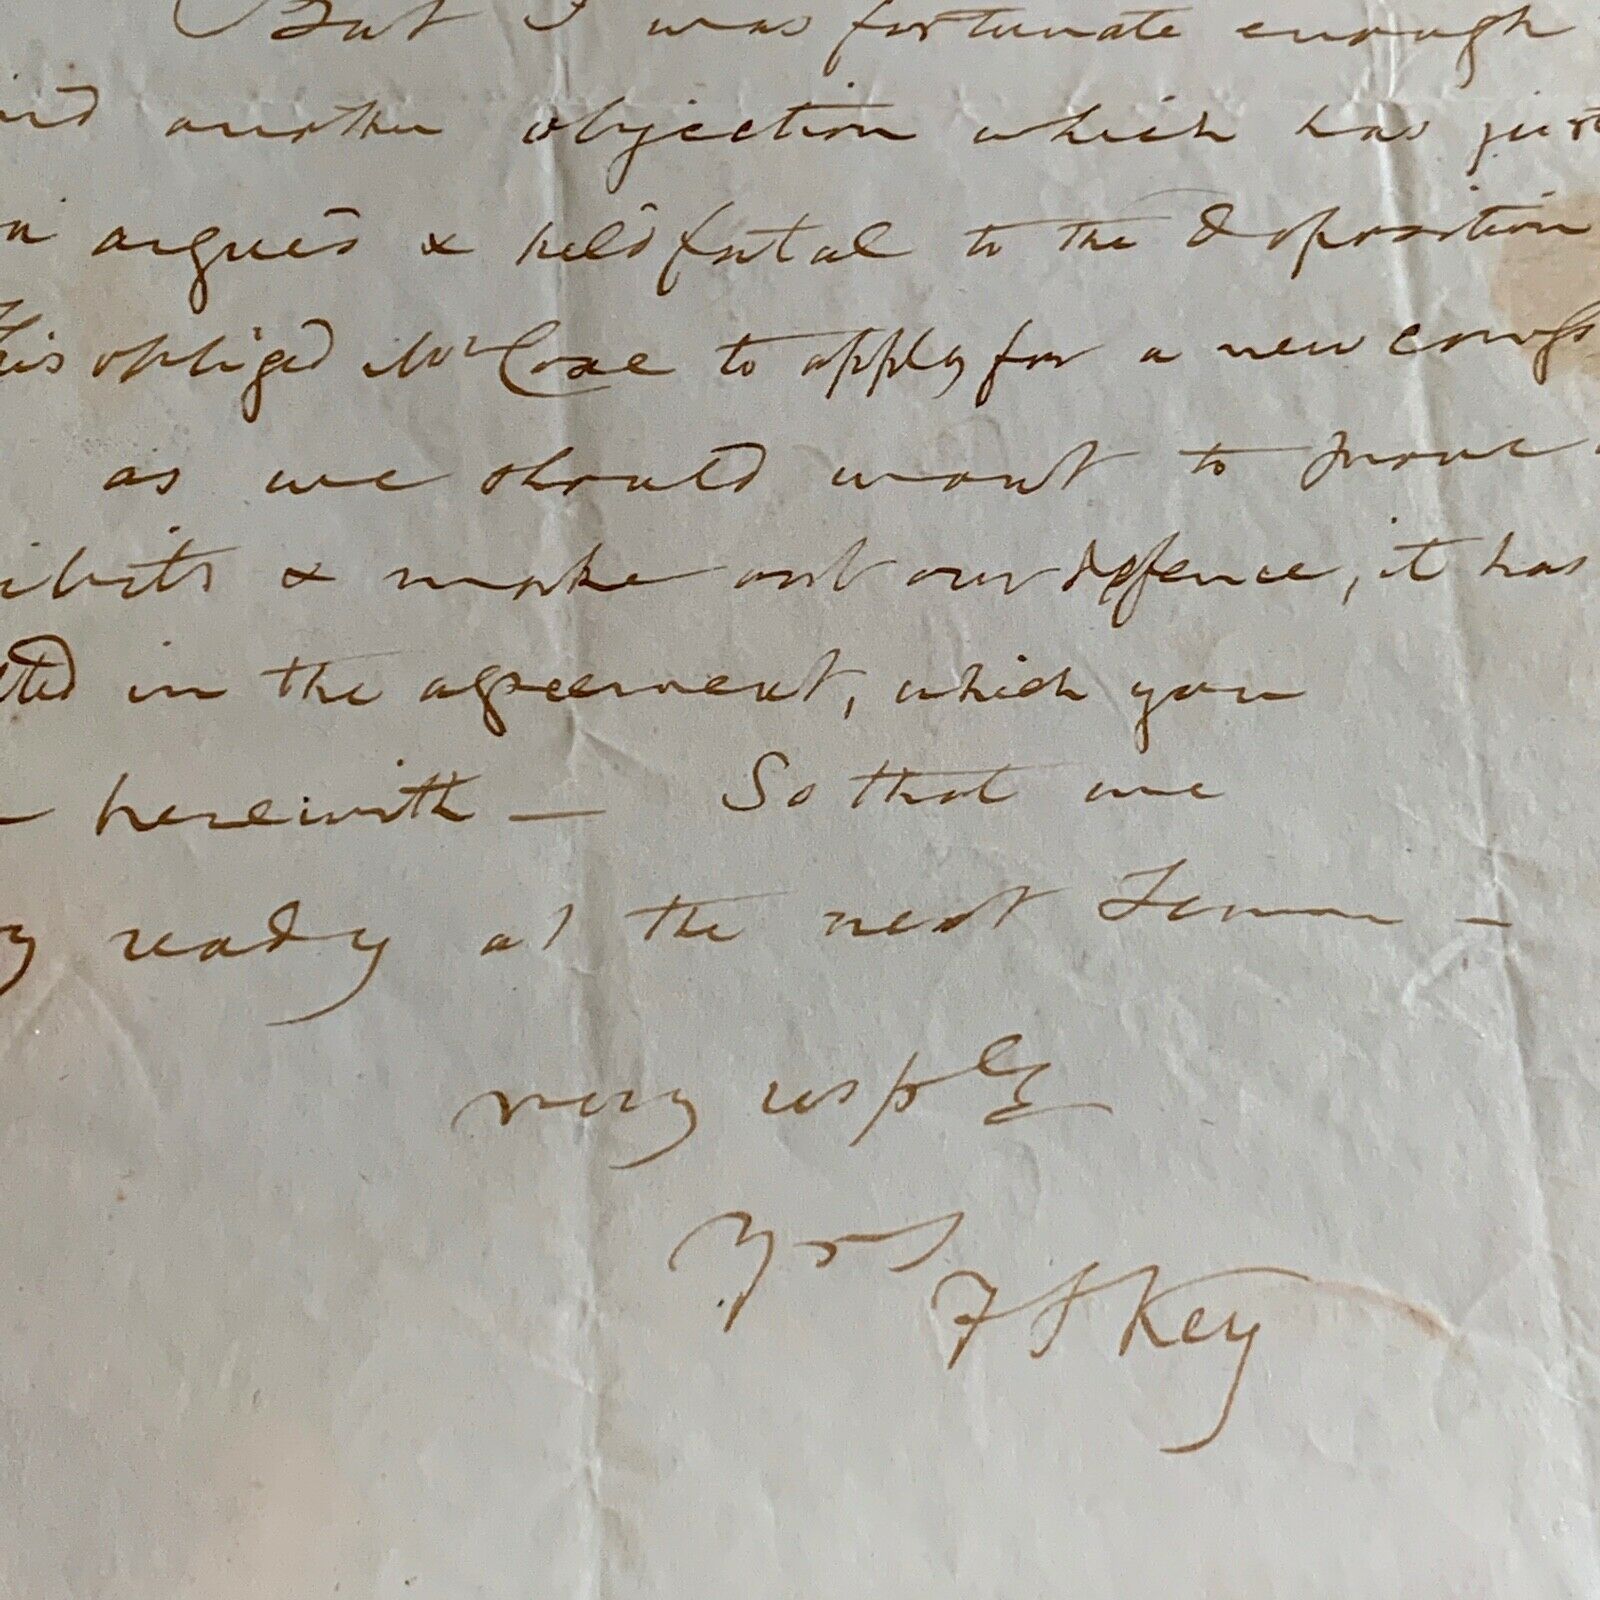 But I was fortunate enough
another objection which has just
argued & held fatal to the deposition
This obliged Mr Coxe to apply for a new
as we should want to prove
ibits & make out our defence, it has
tted in the agreement, which you
— herewith — So that we
y ready at the next Term —
very resply
Yrs
F S Key